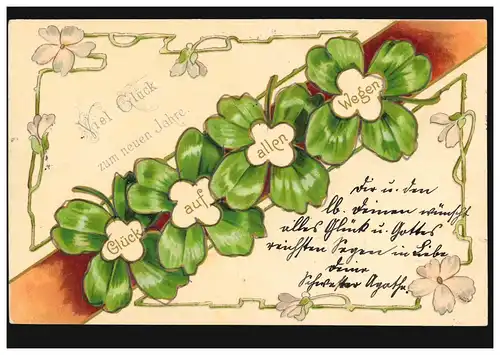 Viel Glück
zum neuen Jahre.
Glück
auf
allen
Wegen
Dir u. den
lb. Deinen wünscht
alles Glück u. Gottes
reichsten Segen in Liebe
deine
Schwester Agathe.